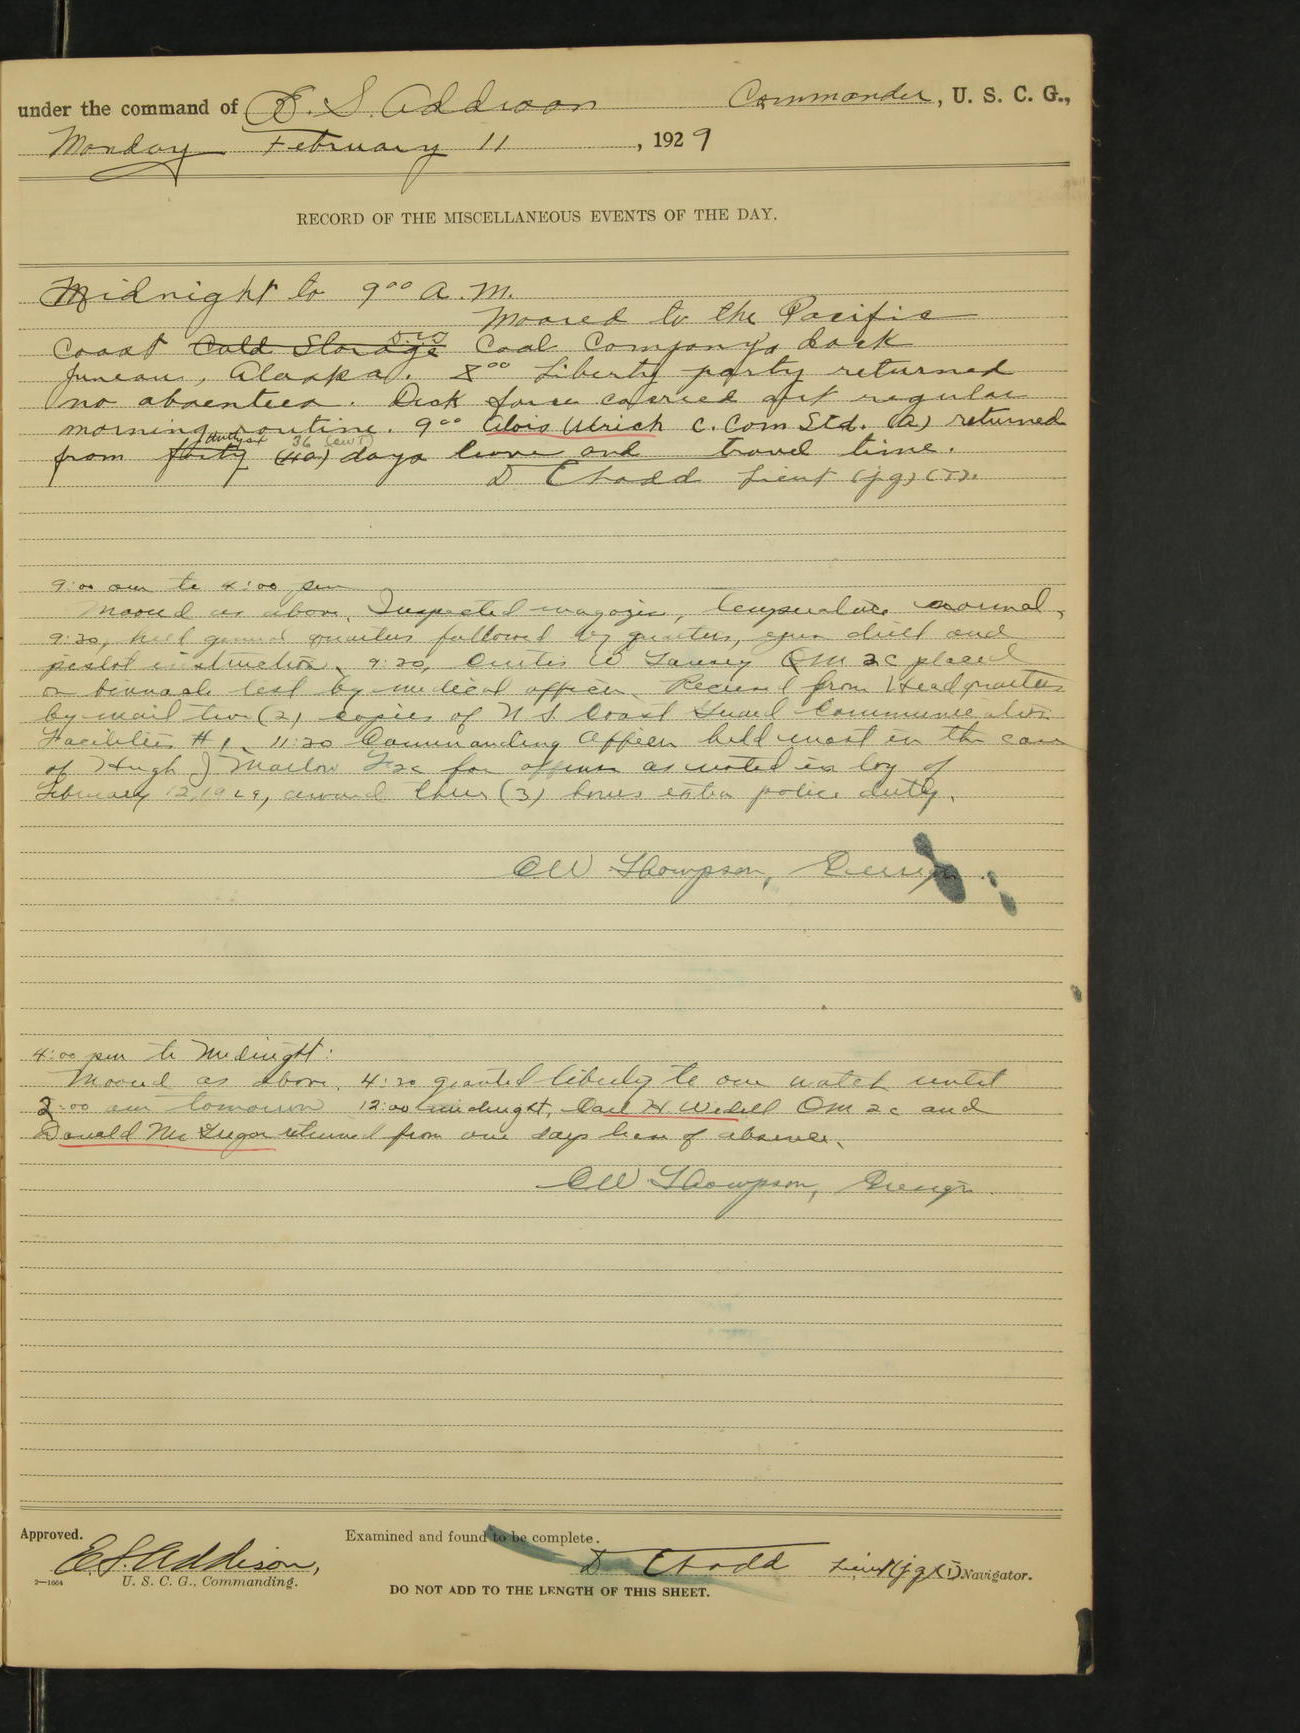 under the command of E. S. Addison Commander, U. S. C. G.,
Monday February 11, 1929
RECORD OF THE MISCELLANEOUS EVENTS OF THE DAY.
Midnight to 9 00 A. M.
Moored to the Pacific
Coast Cold Storage Coal Company's dock
Juneau, Alaska. 8 00 Liberty party returned
no absentees. Deck force carried out regular
morning routine. 9 00 Alois Ulrich C. Com Std. (a) returned
thirtysix 36 (CWT)
from forty (40) days leave and travel time.
D E Todd Lieut (jg) (T).
9:00 am to 4:00 pm
Moored as above. Inspected magazines, temperature normal.
9:20, held general quarters followed by quarters, gun drill and
pistol instruction. 9:20, Curtis W QM 2c placed
on binnacle list by medical officer. Received from Headquarters
by mail two (2) copies of U S Coast Guard Communication
Facilities # 1. 11:30 Commanding Officer held mast in the case
of Hugh J Marlow F2c for offense as noted in log of
February 12, 1929, award three (3) hours extra police duty.
C W Thompson, Ensign.
4:00 pm to Midnight:
Moored as above. 4:20 granted liberty to one watch until
2:00 am tomorrow 12:00 midnight, Carl H. Wedell QM 2c and
Donald McGregor returned from one days leave of absence.
C W Thompson, Ensign.
Approved. Examined and found to be complete.
E. S. Addison, D E Todd Lieut (jg)(T) Navigator.
2—1664 U. S. C. G., Commanding.
DO NOT ADD TO THE LENGTH OF THIS SHEET.